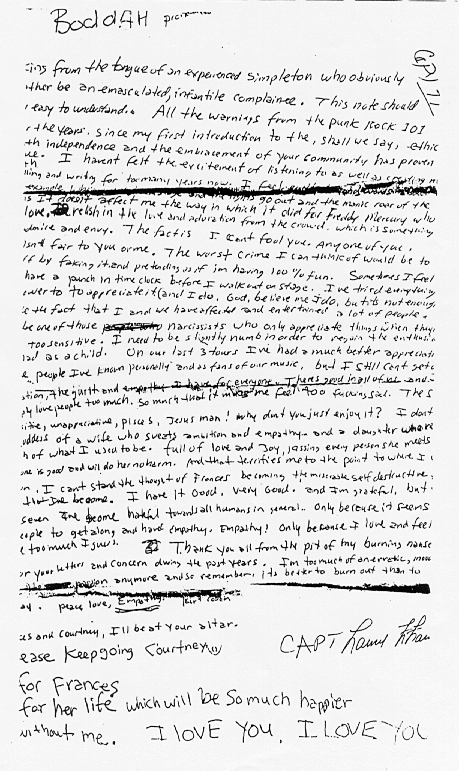 BoddAH
from the tongue of an experienced simpleton who obviously
be an emasculated, infantile complainee. This note should
easy to understand. All the warnings from the punk Rock 101
the years. since my first introduction to the, shall we say, ethic
independence and the embracement of your community has proven
I havent felt the excitement of listening to as well as creating
and writing for too many years now. I feel
go out and the manic roar of the
It doesnt affect me the way in which it did for Freddy Mercury who
love, relish in the love and adoration from the crowd. which is something
admire and envy. The fact is I Cant fool you. Any one of you.
isnt fair to you or me. The worst crime I can think of would be to
by faking it and pretending as if im having 100% fun. Sometimes I feel
have a punch in time clock before I walk out on stage. I've tried everything
power to appreciate it (and I do, God, believe me I do, but its not enough
the fact that I and we have affected and entertained a lot of people.
be one of those narcissists who only appreciate things when they
too sensitive. I need to be slightly numb in order to regain the
as a child. On our last 3 tours I've had a much better
people I've known personally and as fans of our music, but I still cant get
the guilt and empathy I have for everyone. Theres good in all of us and
love people too much. So much that it makes me feel too fucking sad. The
unappreciative, pisces, Jesus man! why dont you just enjoy it? I dont
of a wife who sweats ambition and empathy and a daughter who re
of what I used to be. full of love and joy, kissing every person she meets
is good and will do her no harm. And that terrifies me to the point to where I
I cant stand the thought of Frances becoming the miserable self destructive,
that Ive become. I have it Good, very Good. and I'm grateful, but
seven Ive become hateful towards all humans in general. Only because it seems
to get along and have empathy. Empathy! Only because I love and feel
too much I guess. Thank you all from the pit of my burning nause
your letters and concern during the past years. I'm too much of an erratic,
anymore and so remember, its better to burn out than to
peace, love, Empathy. kurt cobain
and Courtney, I'll be at your altar.
Keep going Courtney
for Frances
for her life which will be so much happier
without me. I LOVE YOU. I LOVE YOU